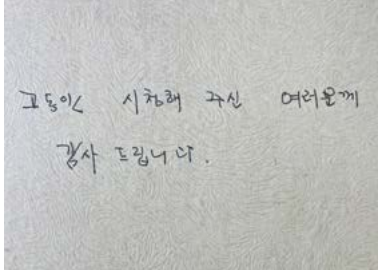 고동이< 시청해 주신 여러분께
감사 드립니다.